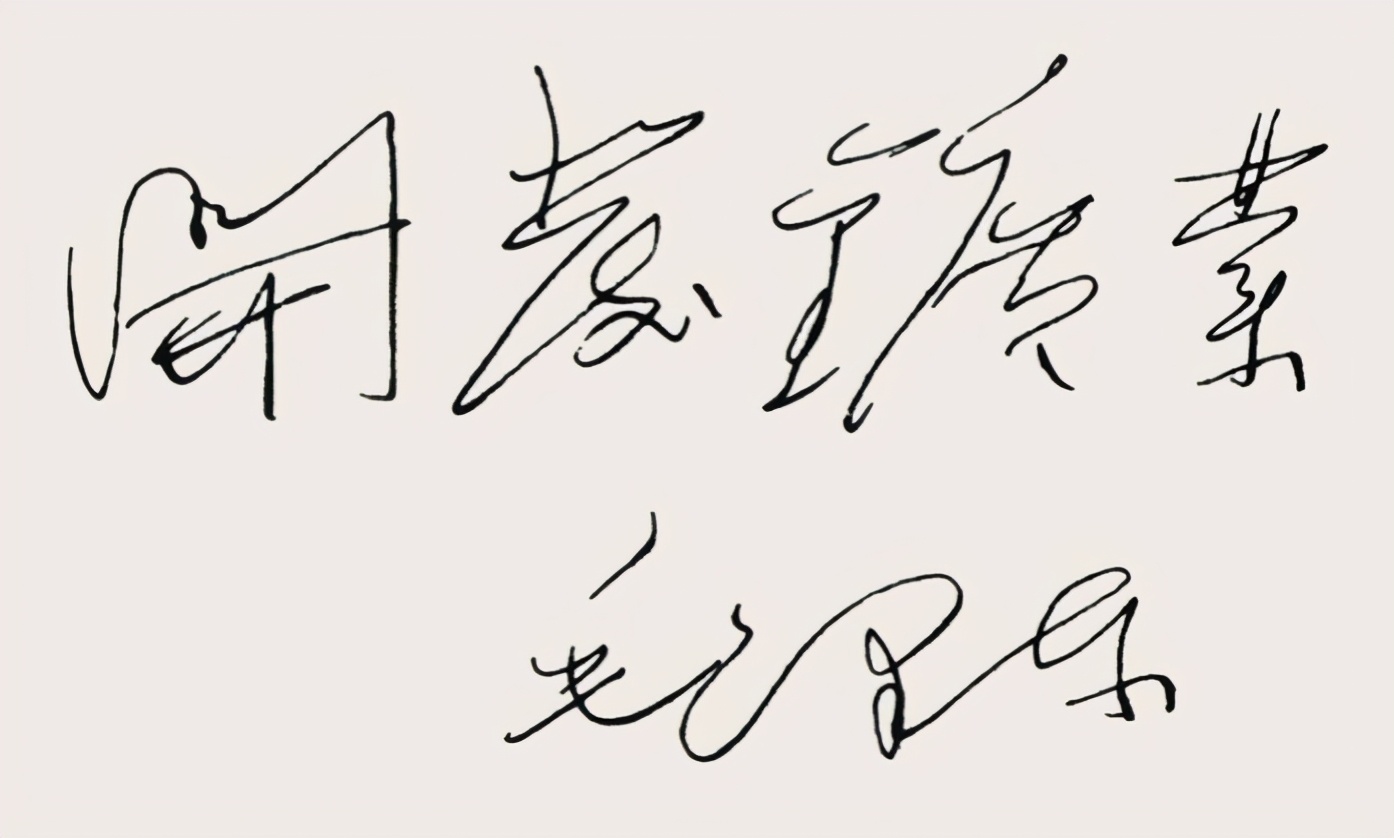 開發鑛業
毛泽东